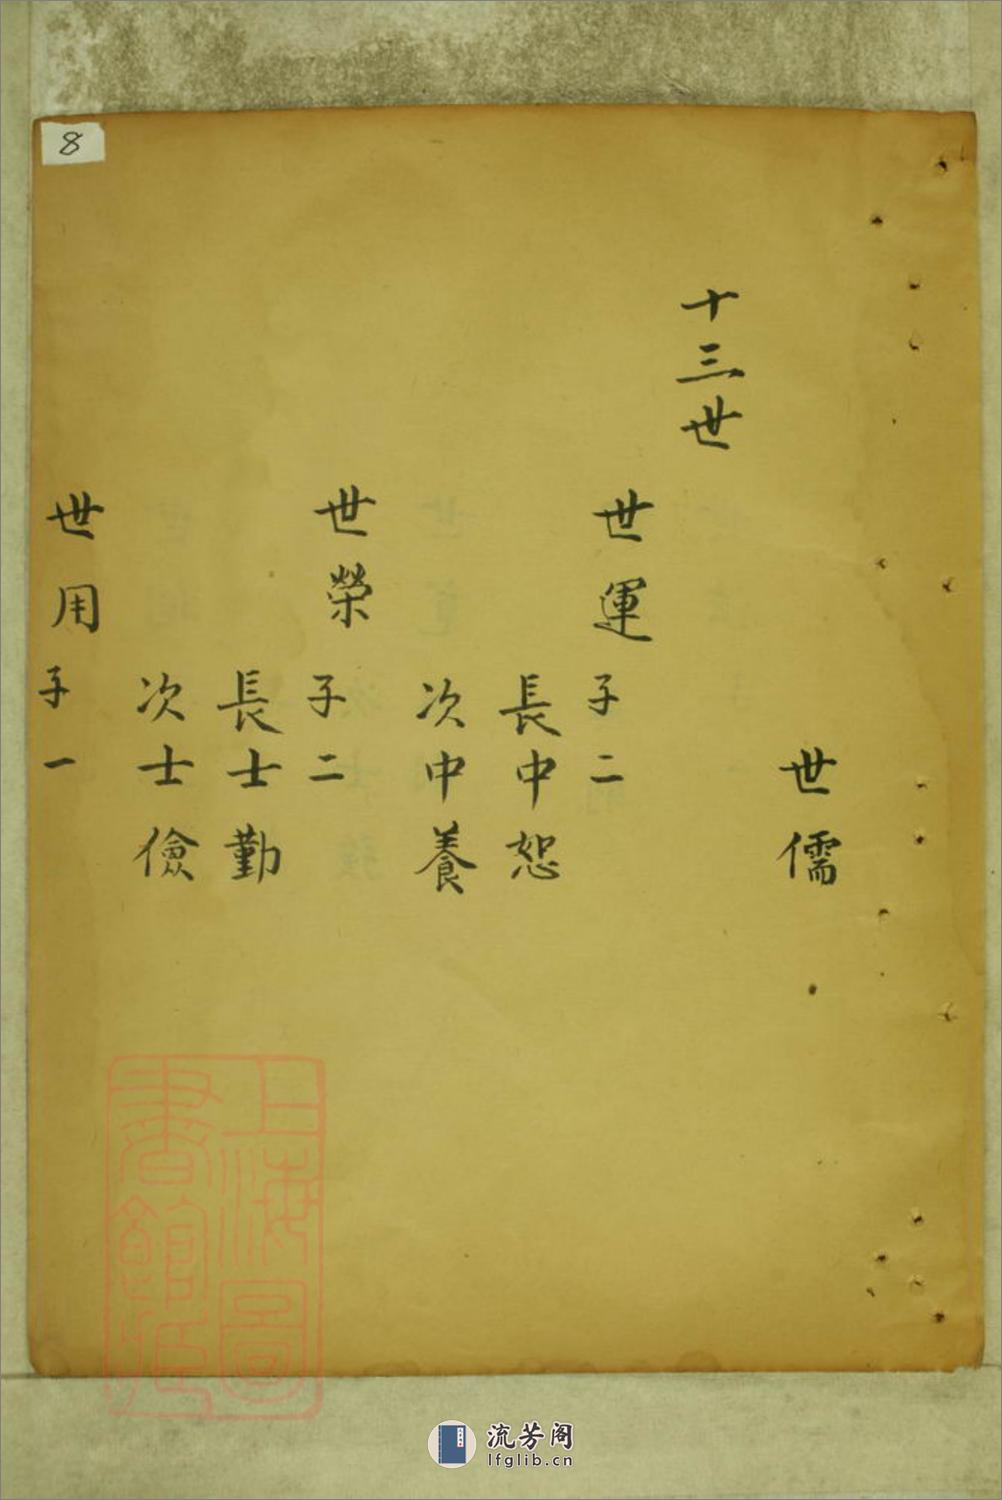 8
世儒
十三世
世運 子二
長中恕
次中養
世榮 子二
長士勤
次士儉
世用 子一
上海圖
書館藏
流芳阁
lfglib.cn